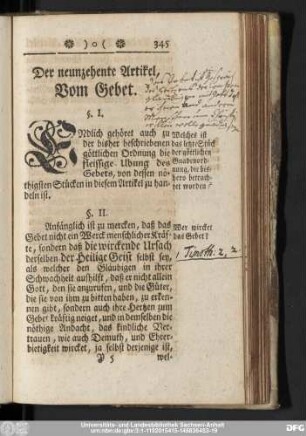 ❁ ) o ( ❁ 345
Der neunzehente Artikel,
Vom Gebet.
§. I.
ENdlich gehöret auch zu
der bisher beschriebenen
göttlichen Ordnung die
fleissige Ubung des
Gebets, von dessen nö-
thigsten Stücken in diesem Artikel zu han-
deln ist.
Welches ist
das letzte Stück
der göttlichen
Gnadenord-
nung, die bis-
hero betrach-
tet worden?
§. II.
Anfänglich ist zu mercken, daß das
Gebet nicht ein Werck menschlicher Kräf-
te, sondern daß die wirckende Ursach
derselben der Heilige Geist selbst sey,
als welcher den Gläubigen in ihrer
Schwachheit aufhilft, daß er nicht allein
Gott, den sie anzurufen, und die Güter,
die sie von ihm zu bitten haben, zu erken-
nen gibt, sondern auch ihre Hertzen zum
Gebet kräftig neiget, und in demselben die
nöthige Andacht, das kindliche Ver-
trauen, wie auch Demuth, und Ehrer-
bietigkeit wircket, ja selbst derjenige ist,
Wer wircket
das Gebet?
1 Timoth: 2, 2
P 5 wel-
Universitäts- und Landesbibliothek Sachsen-Anhalt
urn:nbn:de:gbv:3:1-1192015415-146836403-19
DFG